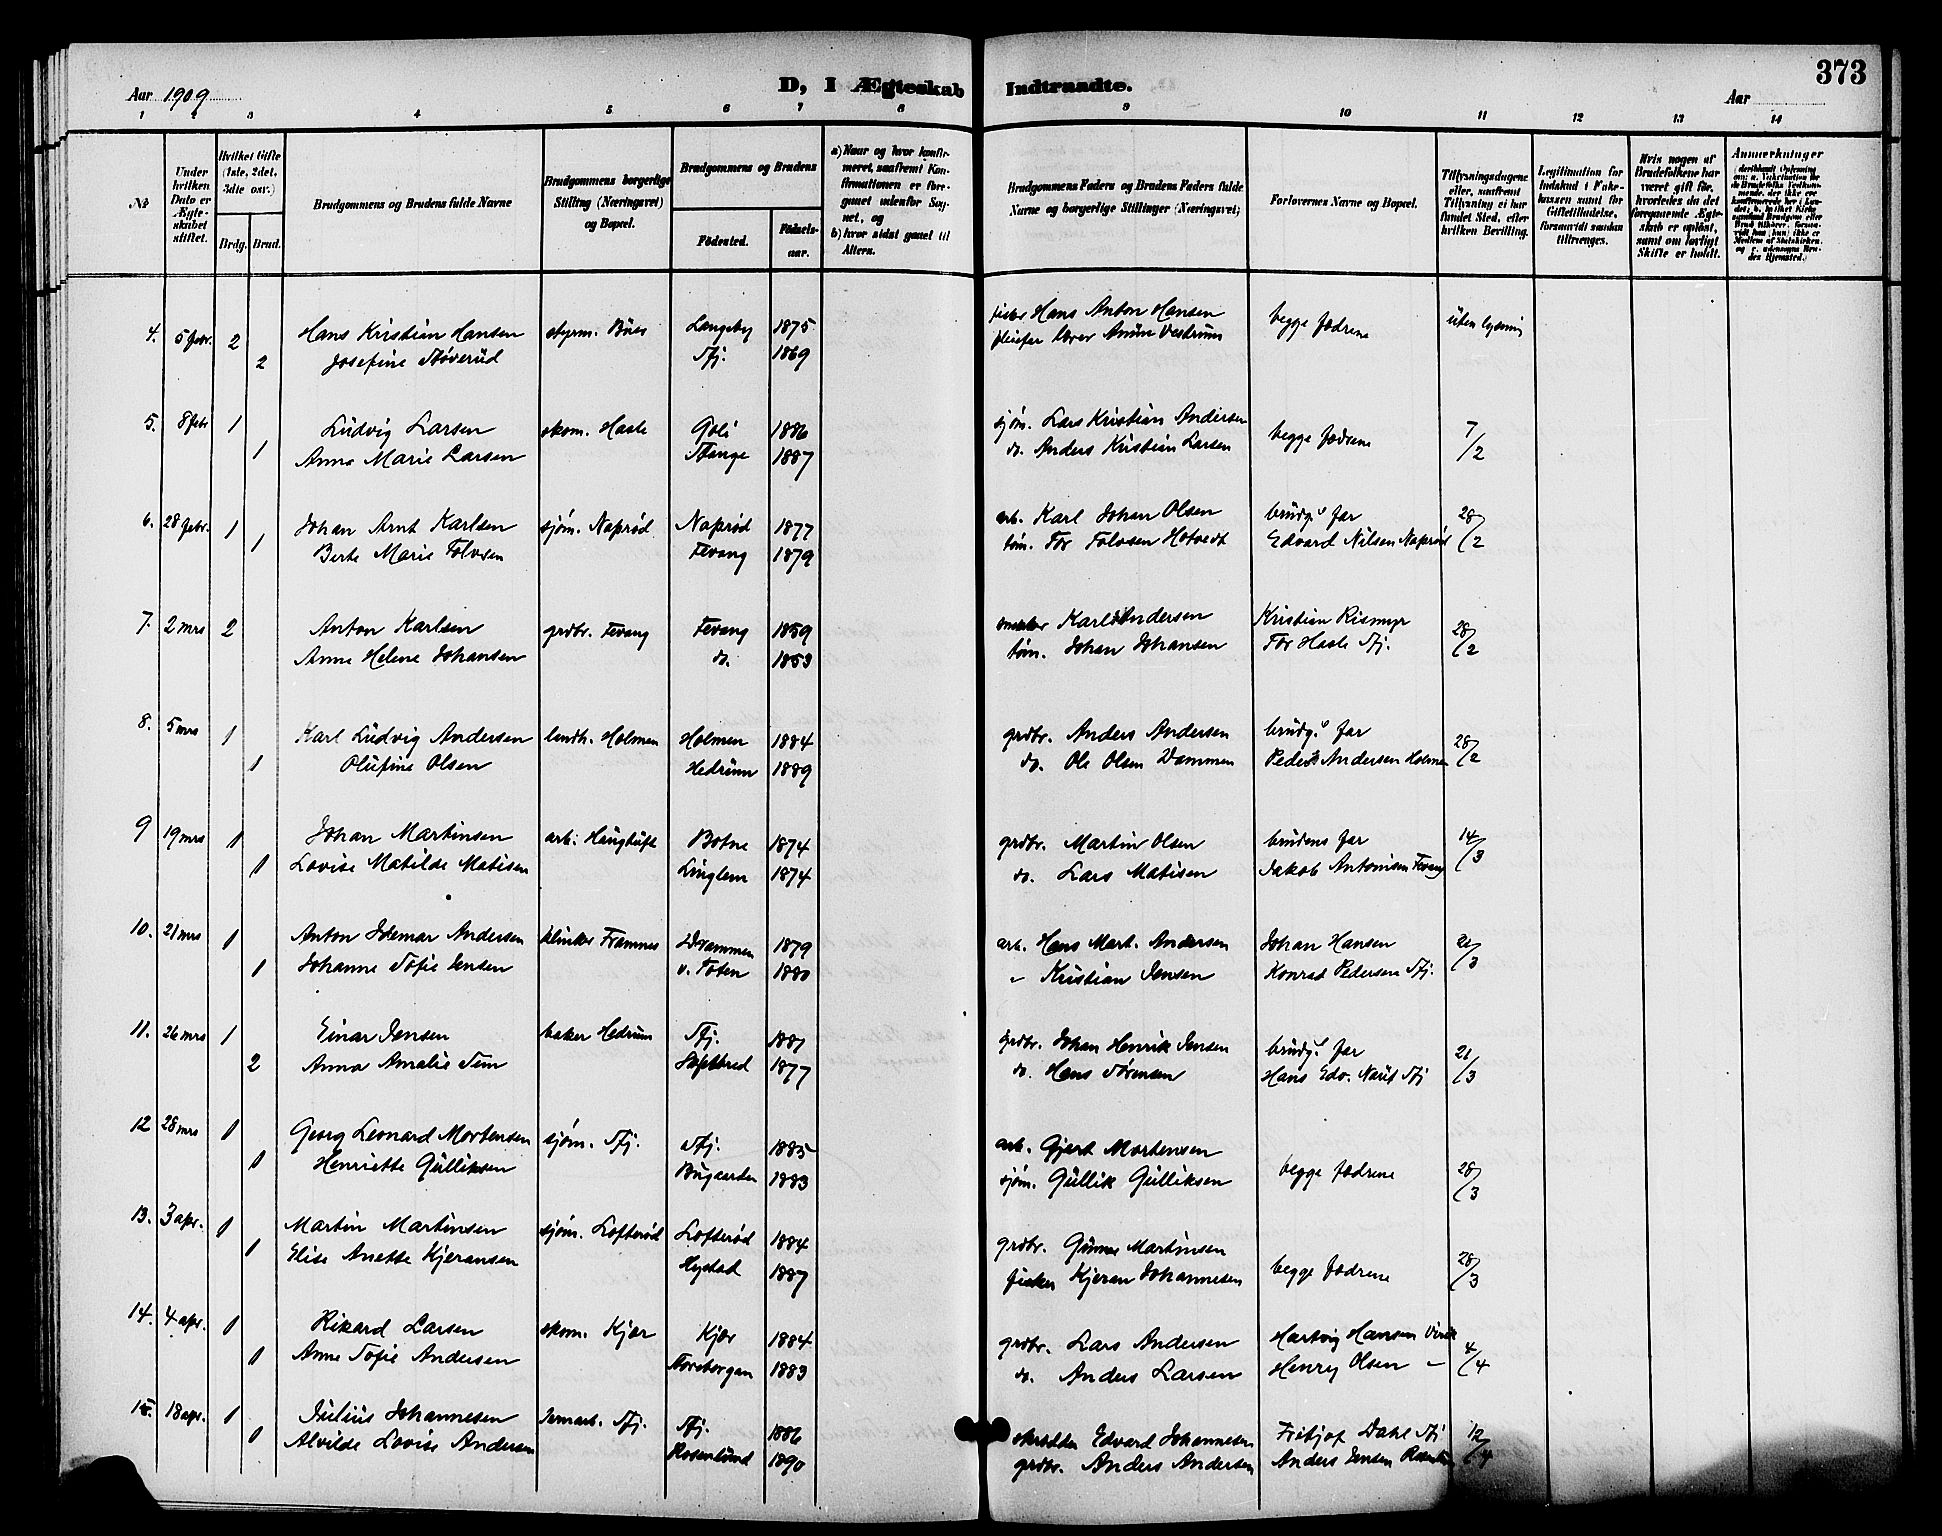 373
Aar 1909
D, I Ægteskab Indtraadte.
Aar
1 2 3 4 5 6 7 8 9 10 11 12 13 14
№
Under hvilken Dato er Ægteskabet stiftet.
Hvilket Gifte (1ste, 2det, 3die osv.)
Brdg. Brud.
Brudgommens og Brudens fulde Navne
Brudgommens borgerlige Stilling (Næringsvei) og Bopæl.
Brudgommens og Brudens
Fødested.
Fødselsaar.
a) Naar og hvor konfirmeret, saafremt Konfirmationen er foregaaet udenfor Sognet, og
b) hvor sidst gaaet til Alters.
Brudgommens Faders og Brudens Faders fulde Navne og borgerlige Stillinger (Næringsvei)
Forlovernes Navne og Bopæl.
Tillysningsdagene eller, saafremt Tillysning ei har fundet Sted, efter hvilken Bevilling.
Legitimation for Indskud i Enkekassen samt for Giftetilladelse, forsaavidt saadan tiltrænges.
Hvis nogen af Brudefolkene har været gift før, hvorledes da det foregaaende Ægteskab er opløst, samt om lovligt Skifte er holdt.
Anmærkninger
4. 5 febr. 2 Hans Kristian Hansen styrm. Bües Langeby 1875 Hans Anton Hansen begge fædrene uten lysning
2 Josefine Støverud Sfj. 1869 Vestrum
5. 8 febr 1 Ludvig Larsen skom. Hasle Goli 1886 sjøm. Lars Kristian Andersen begge fædrene 7/2
1 Anna Marie Larsen Stange 1887 do. Anders Kristian Larsen
6. 28 febr. 1 Johan Arnt Karlsen sjøm. Naprød Naprød 1877 arb. Karl Johan Olsen brudg.s far 28/2
1 Berte Marie Tolvsen Fevang 1879 tøm. Tor Tolvsen Hotvedt Edvard Nilsen Naprød
7. 2 mrs 2 Anton Karlsen grdbr. Fevang Fevang 1859 Karl Andersen Kristian Rismyr 28/2
Anne Helene Johansen do. 1853 tøm. Johan Johansen Tor Hasle Sfj.
8. 5 mrs 1 Karl Ludvig Andersen landh. Holmen Holmen 1884 grdbr. Anders Andersen brudg.s far 28/2
1 Olufine Olsen Hedrum 1889 do. Ole Olsen Dammen Peder Andersen Holmen
9 19 mrs 1 Johan Martinsen arb. Haugtuft Botne 1874 grdbr. Martin Olsen brudens far 14/3
1 Lovise Matilde Matisen Linglem 1874 do. Lars Matisen Jakob Antonisen Fevang
10. 21 mrs 1 Anton Idemar Andersen klinker Framnes Drammen 1879 arb. Hans Mart. Andersen Johan Hansen 21/3
1 Johanne Sofie Jensen v. Toten 1880 " Kristian Jensen Konrad Pedersen Sfj.
11. 26 mrs 1 Einar Jensen baker Hedrum Sfj. 1881 grdbr. Johan Henrik Jensen brudg.s far 21/3
2 Anna Amalie Tem 1877 do. Hans Sørensen Hans Edv. Sfj
12 28 mrs 1 Georg Leonard Mortensen sjøm. Sfj. Sfj. 1885 arb. Gjert Mortensen begge fædrene 28/3
1 Henriette Gulliksen Bugaarden 1883 sjøm. Gullik Gulliksen
13. 3 apr. 1 Martin Martinsen sjøm. Lofterød Lofterød 1884 grdbr. Martinsen begge fædrene 28/3
1 Elise Anette Kjeransen Hystad 1887 fisker Kjeran Johannesen
14. 4 apr. 1 Rikard Larsen skom. Kjær Kjær 1884 grdbr. Lars Andersen Hartvig Hansen Virik 4/4
1 Anne Sofie Andersen Storebergan 1883 do. Anders Larsen Henry Olsen "
15 18 apr. 1 Julius Johannesen jernarb. Sfj. Sfj. 1886 skrædder Edvard Johannesen Fritjof Dahl Sfj 12/4
1 Alvilde Lovise Andersen Rosenlund 1890 grdbr. Anders Andersen Anders Jensen